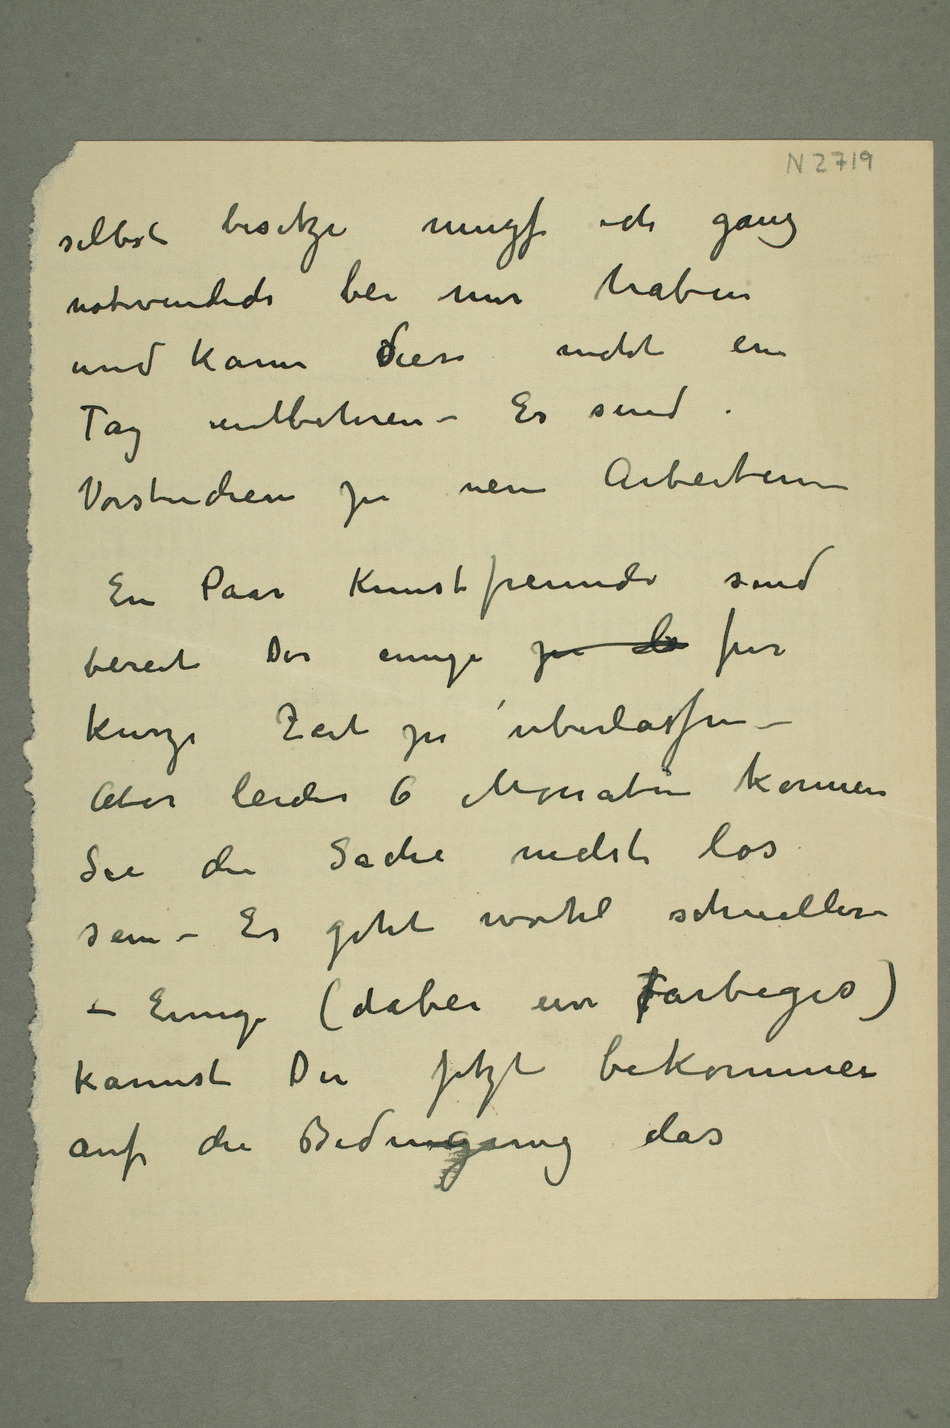 N 2719
selbst besitze muß ich ganz
notwendich bei mir haben
und kann diese nicht ein
Tag entbehren – Es sind
Vorstudien zu neue Arbeiten –
Ein Paar Kunstfreunde sind
bereit Dir einige zu für
kurze Zeit zu überlassen –
Aber leider 6 Monaten können
Sie die Sache nicht los
sein – Es geht wohl schneller
– Einige (dabei ein farbeges)
kannst Du jetzt bekommen
auf die Bedingung das